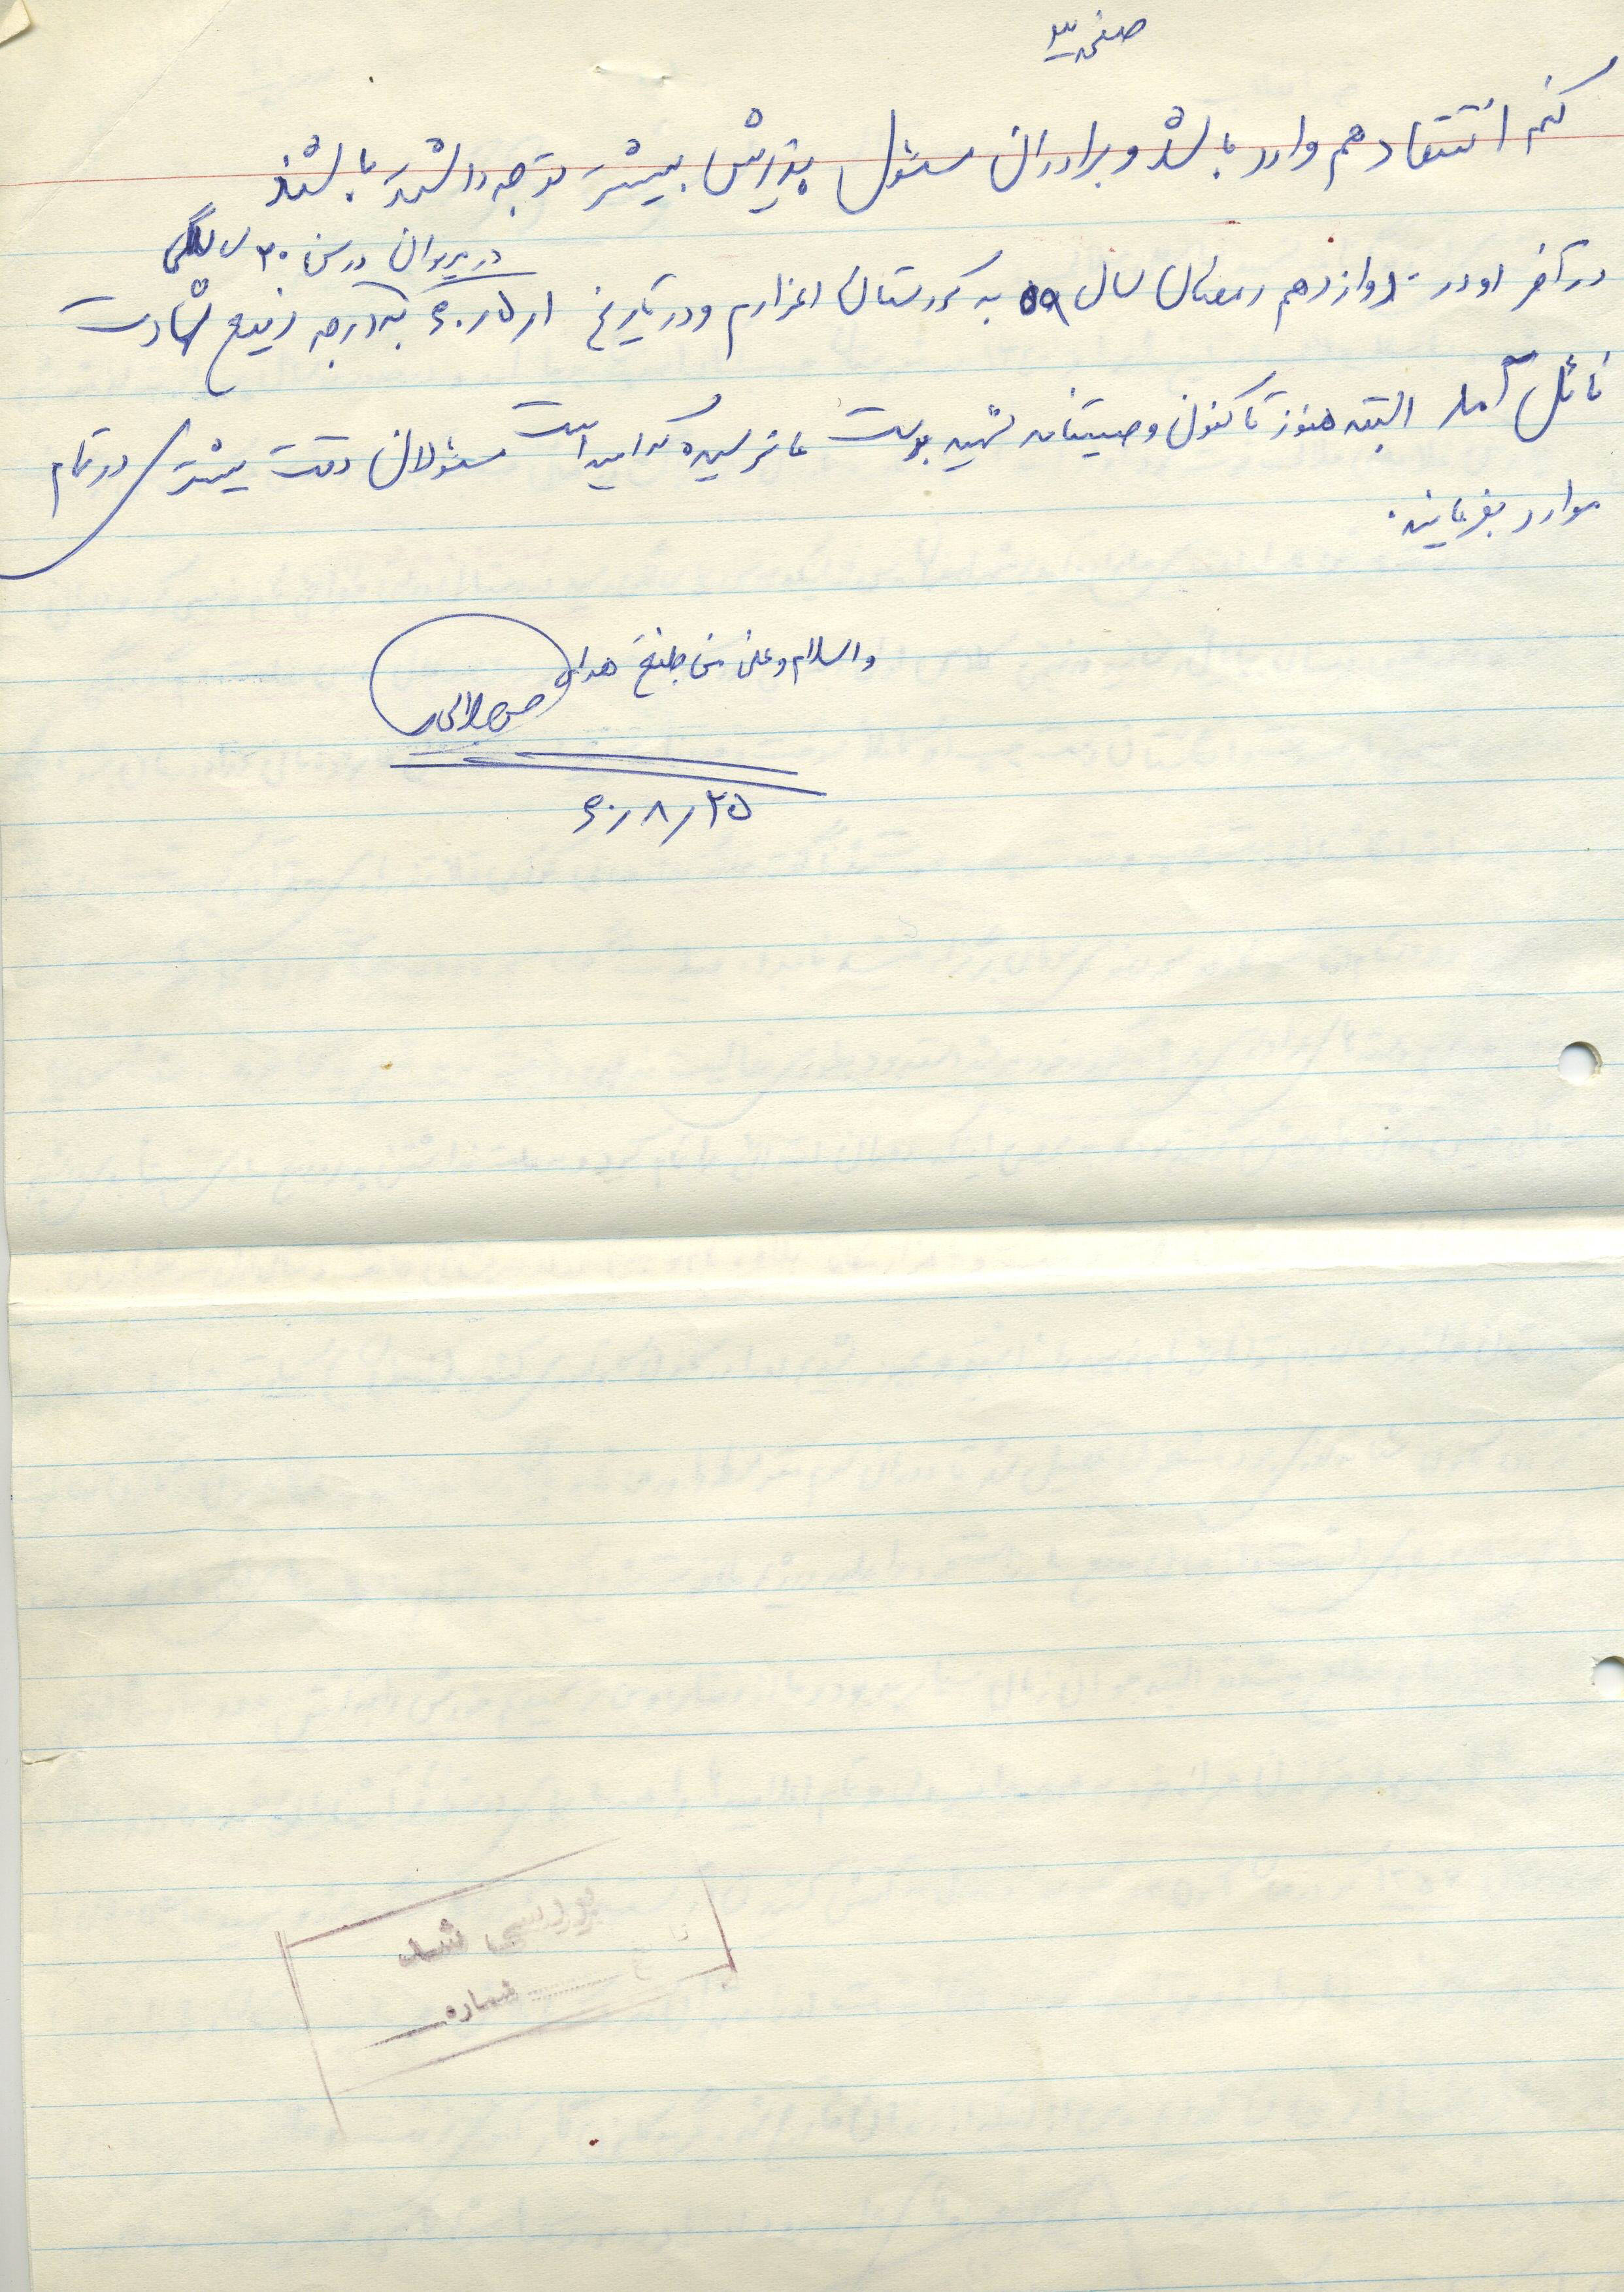 صفحه ۳
کنم انتقاد هم وارد باشد و برادران مسئول پذیرش بیشتر توجه داشته باشند
در مریوان در سن ۲۰ سالگی
در آخر او در دوازدهم رمضان سال ۵۹ به کردستان اعزام و در تاریخ ۶۰/۵/۱ به درجه رفیع شهادت
نائل آمد البته هنوز تا کنون وصیتنامه شهید بدست ما نرسیده که امید است مسئولان دقت بیشتری در تمام
موارد بفرمایند.
والسلام و علی من اتبع هدی
۶۰/۸/۲۵
بررسی شد
شماره